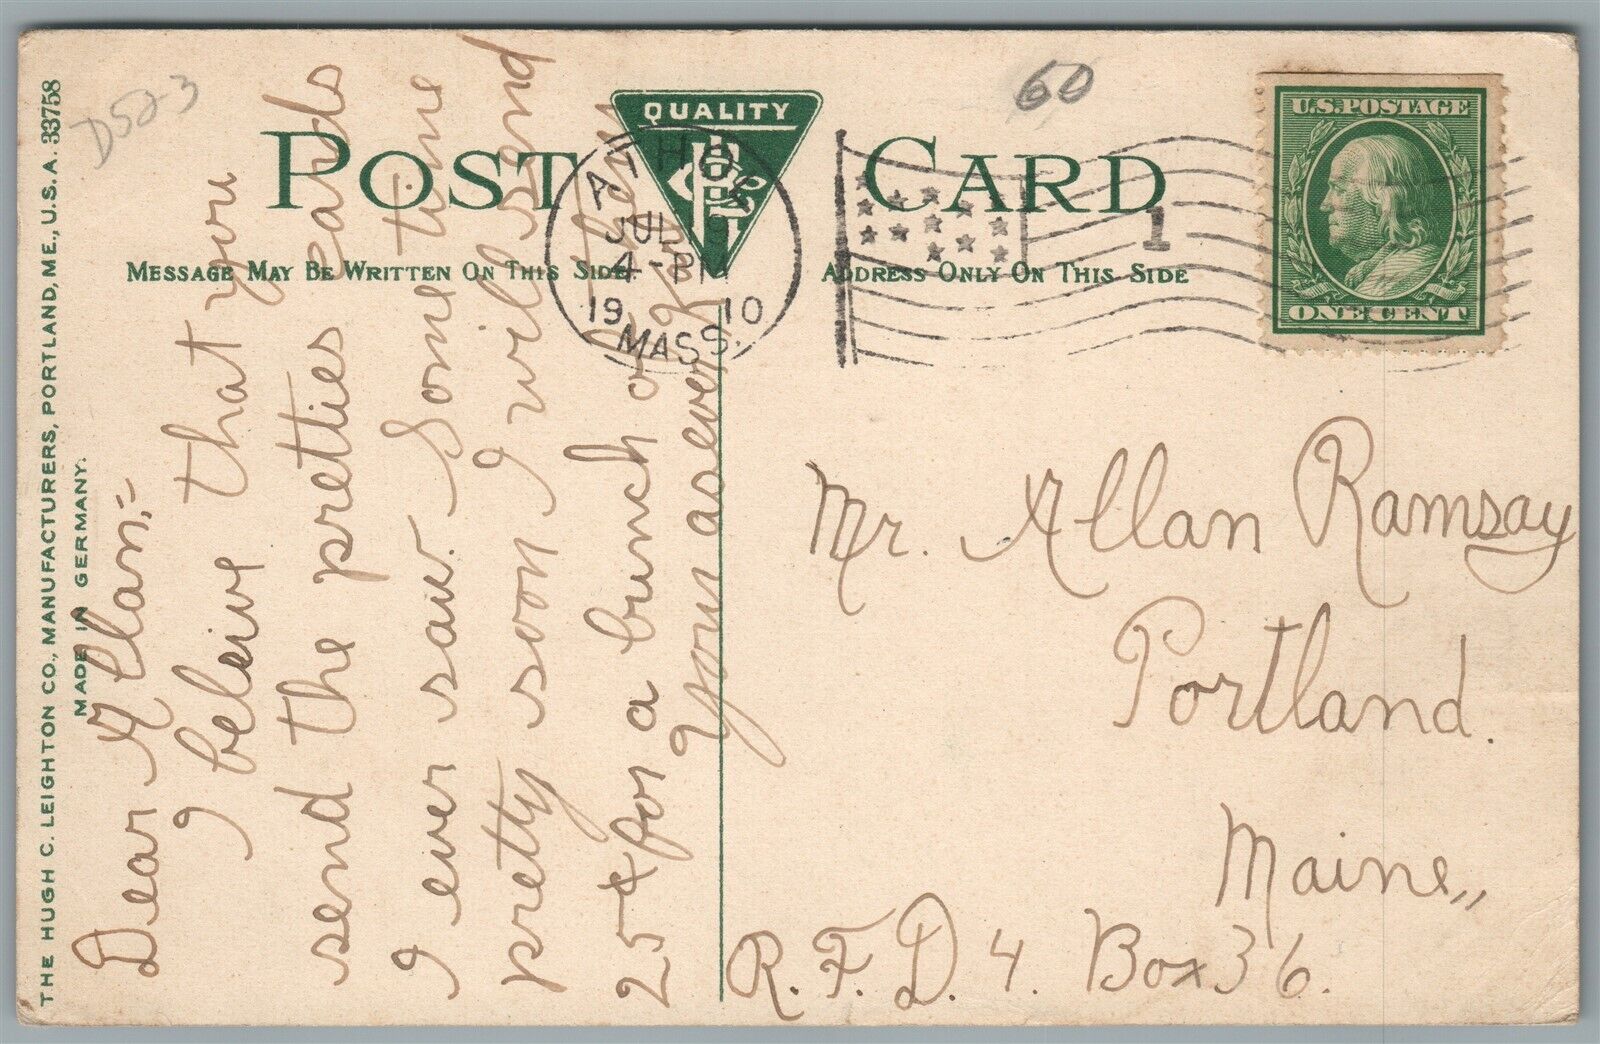 THE HUGH C. LEIGHTON CO., MANUFACTURERS, PORTLAND, ME., U.S.A. 33758
MADE IN GERMANY.
D52-3
60
POST CARD
QUALITY
MESSAGE MAY BE WRITTEN ON THIS SIDE
ADDRESS ONLY ON THIS SIDE
ATHOL
JUL 9
4-PM
19 10
MASS.
1
U.S. POSTAGE
ONE CENT
Dear Allan,=
I beleive that you
send the pretties cards
I ever saw. Some time
pretty soon I will send
25¢ for a bunch of them
Your as ever
Mr. Allan Ramsay
Portland.
Maine,,
R.F.D. 4. Box 36.